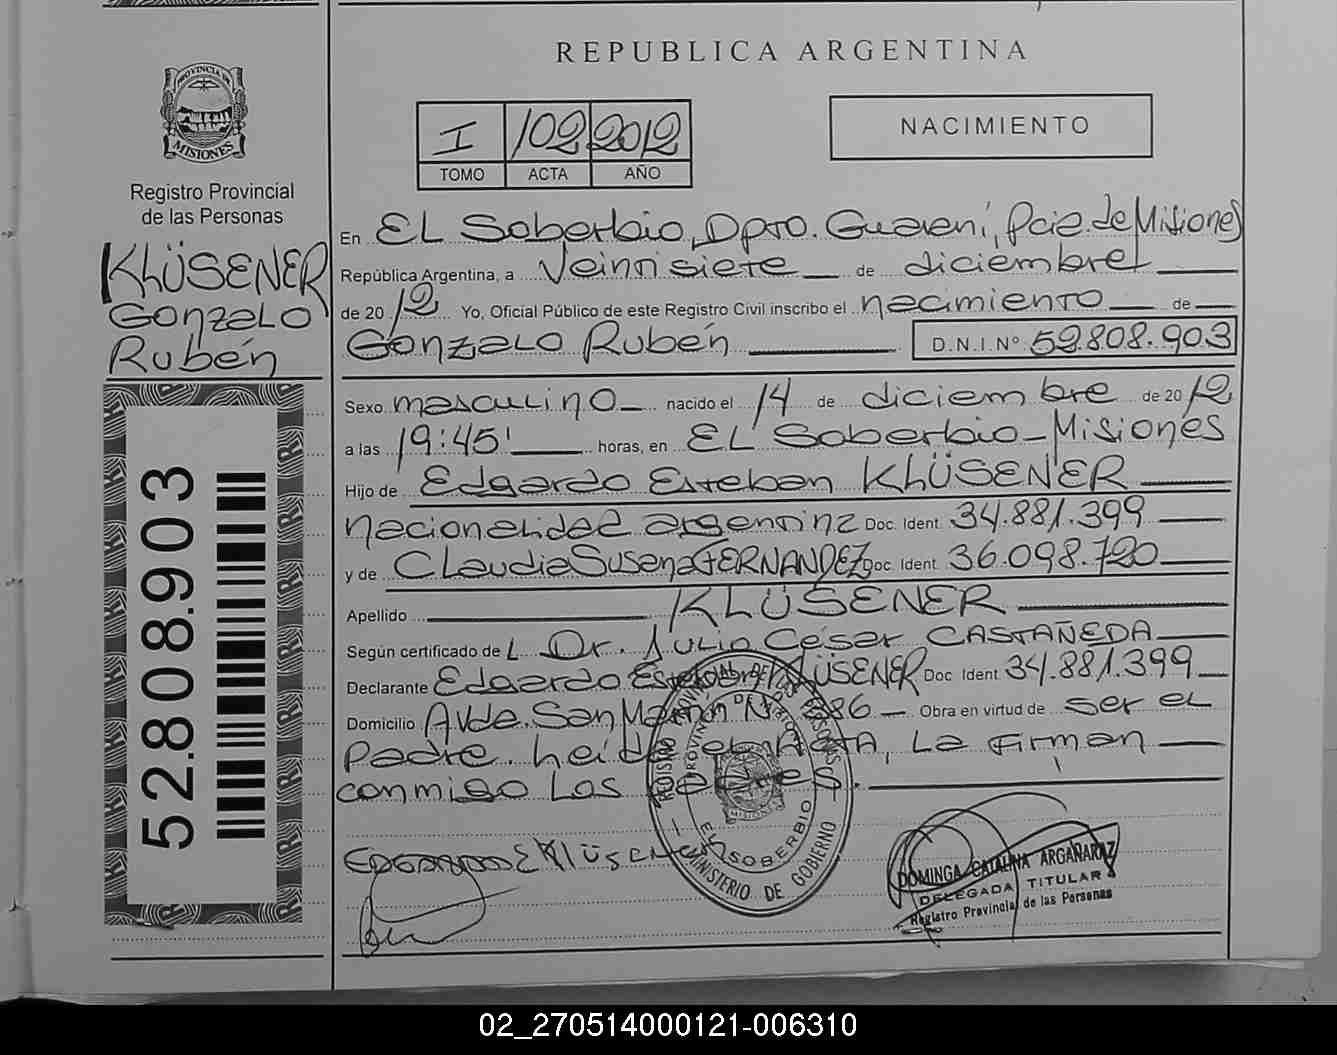 REPUBLICA ARGENTINA
PROVINCIA DE
MISIONES
Registro Provincial
de las Personas
KLÜSENER
Gonzalo
Rubén
52.808.903
I 102 2012
TOMO ACTA AÑO
NACIMIENTO
En EL Soberbio, Dpto. Guaraní, Pcia. de Misiones
República Argentina, a Veintisiete de diciembre
de 2012 Yo, Oficial Público de este Registro Civil inscribo el nacimiento de
Gonzalo Rubén D.N.I.Nº 52.808.903
Sexo masculino nacido el 14 de diciembre de 2012
a las 19:45' horas, en EL Soberbio-Misiones
Hijo de Edgardo Esteban KLÜSENER
nacionalidad argentina Doc. Ident. 34.881.399
y de Claudia Susana FERNANDEZ Doc. Ident. 36.098.720
Apellido KLÜSENER
Según certificado de L Dr. Julio César CASTAÑEDA
Declarante Edgardo Esteban KLÜSENER Doc Ident 34.881.399
Domicilio Avda. San Martín Nº Obra en virtud de ser el
padre. Leída el ACTA, La firman
conmigo los padres.
REGISTRO PROVINCIAL DE LAS PERSONAS
PROVINCIA DE MISIONES
EL SOBERBIO
MINISTERIO DE GOBIERNO
Edgardo E Klüsener
DOMINGA CATALINA ARGAÑARAZ
DELEGADA TITULAR
Registro Provincial de las Personas
02_270514000121-006310